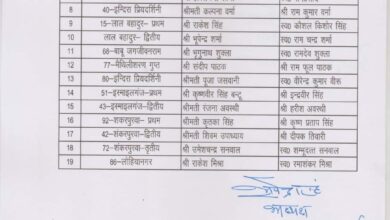 8 40–इन्दिरा प्रियदर्शिनी श्रीमती कल्पना वर्मा श्री राम कुमार वर्मा
9 15–लाल बहादुर– प्रथम श्री राकेश सिंह स्व0 कौशल किशोर सिंह
10 लाल बहादुर– द्वितीय श्री भूपेन्द्र शर्मा स्व0 राम चन्द्र शर्मा
11 66–बाबू जगजीवनराम श्री भृगुनाथ शुक्ला स्व0 रामदेव शुक्ला
12 77–मैथिलीशरण गुप्त श्री संदीप पाठक श्री राम फूल पाठक
13 80–इन्दिरा प्रियदर्शिनी श्रीमती पूजा जसवानी स्व0 वीरेन्द्र कुमार वीरू
14 51–इस्माइलगंज–प्रथम श्री कृष्णवीर सिंह बन्टू श्री इन्द्रवीर सिंह
15 43–इस्माइलगंज–द्वितीय श्रीमती रंजना अवस्थी श्री हरीश अवस्थी
16 92–शंकरपुरवा– प्रथम श्रीमती कुतक सिंह श्री कृष्ण प्रताप सिंह
17 42–शंकरपुरवा–द्वितीय श्रीमती शिवम उपाध्याय श्री दीपक तिवारी
18 72–शंकरपुरवा–तृतीय श्री उमेशचन्द्र सनवाल स्व0 सनवाल
19 86–लोहियानगर श्री राकेश मिश्रा स्व0 रमाशंकर मिश्रा